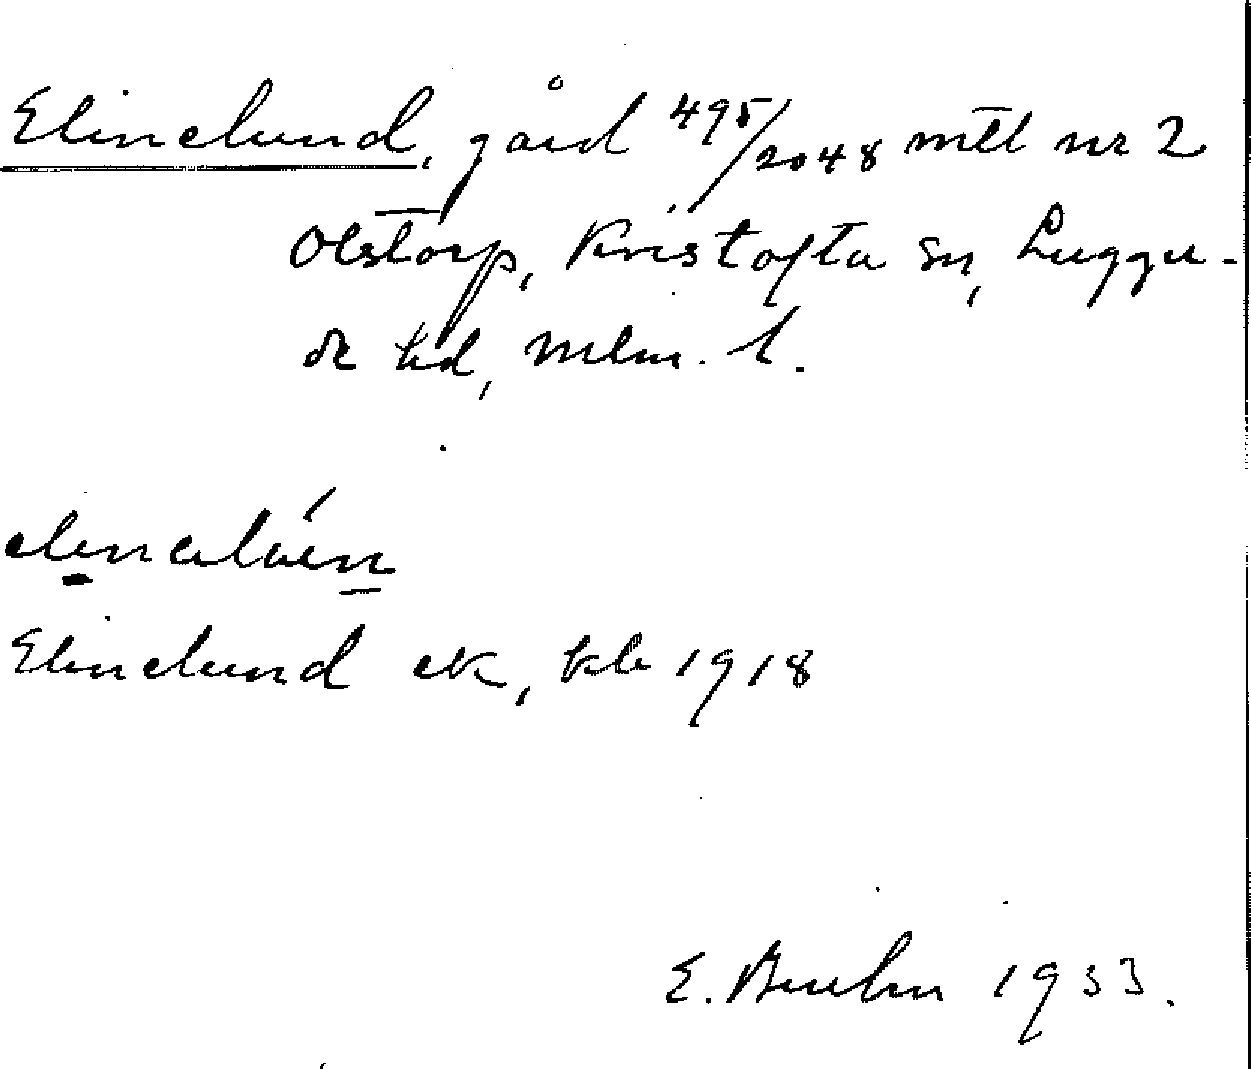 Elinelund, gård 495/2048 mtl nr 2
Olstorp, Kristofta sn, Luggu-
de hd, Mlm. l.
Elinelund ek, kb 1918
E. 1933.